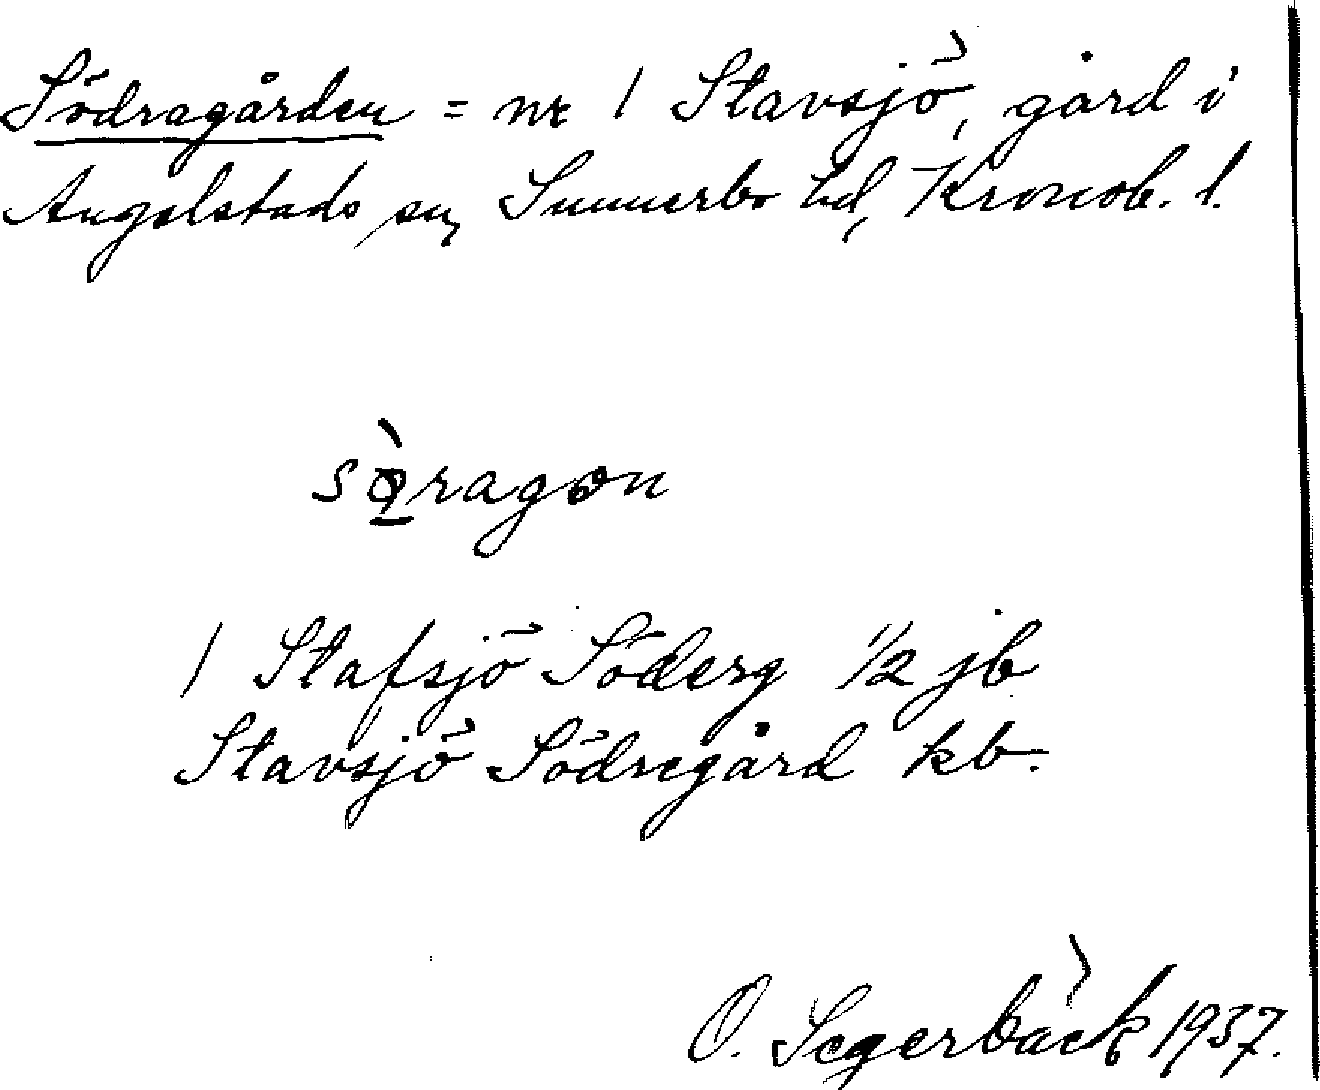 Södragården = nr 1 Stavsjö, gård i
Angelstads sn, Sunnerbo hd, Kronob. l.
sǫ̀ragɵn
1 Stafsjö Söderg 1/2 jb
Stavsjö Södregård kb.
O. Segerbäck 1937.